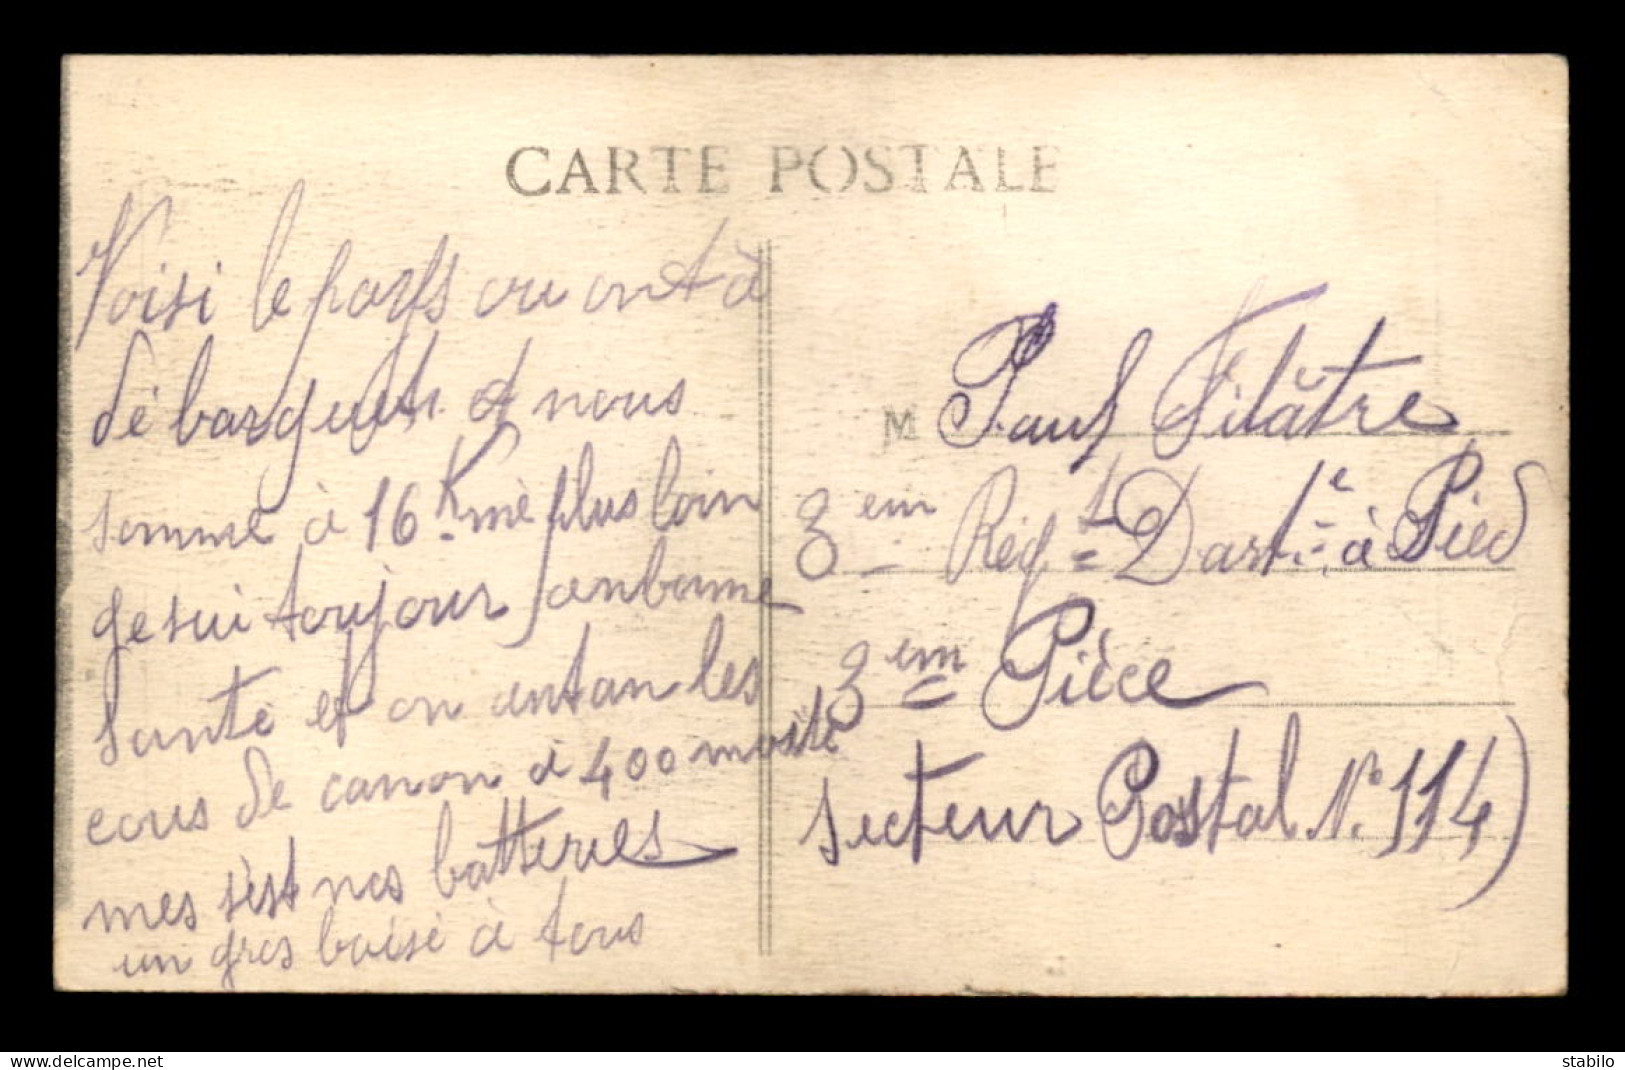 CARTE POSTALE
Voisi le pays ou ont à
débarquét. et nous
somme à 16 Kme plus loin
ge sui toujour enbonne
santé et on antan les
cous de canon à 400
mes s'est nos batteries
un gros baisé à tous
M Paul Filâtre
3em Régt D'art.ie à Pied
3em Pièce
secteur Postal N° 114)
www.delcampe.net
stabilo